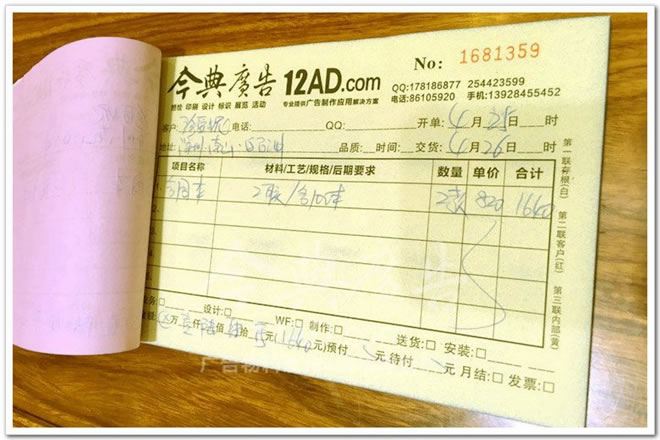 今典廣告 12AD.com No: 1681359
喷绘 印刷 设计 标识 展览 活动 专业提供广告制作应用解决方案
QQ:178186877 254423599
电话:86105920 手机:13928455452
客户: 电话: QQ: 开单: 4月25日 时
地址: 品质: 时间: 交货: 4月26日 时
项目名称 材料/工艺/规格/后期要求 数量 单价 合计
合同本 2联/ 820 1640
业务: 设计: WF: 制作: 送货: 安装:
万 仟 佰 拾 元(1640元)预付 元待付 元 月结: 发票:
第一联存根(白) 第二联客户(红) 第三联内部(黄)